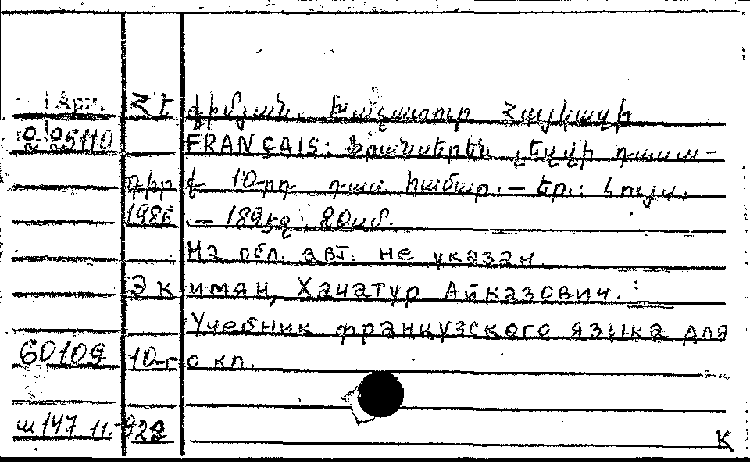 Հէքիմյան, Խաչատուր Հայկազի
FRANÇAIS: Ֆրանսերեն լեզվի դասա-
գիրք 10-րդ դաս. համար. — Եր.: Լույս,
— 189 էջ, 20 սմ.
На обл. авт. не указан.
Экимян, Хачатур Айказович.
Учебник французского языка для
60109 10-го кл.
К